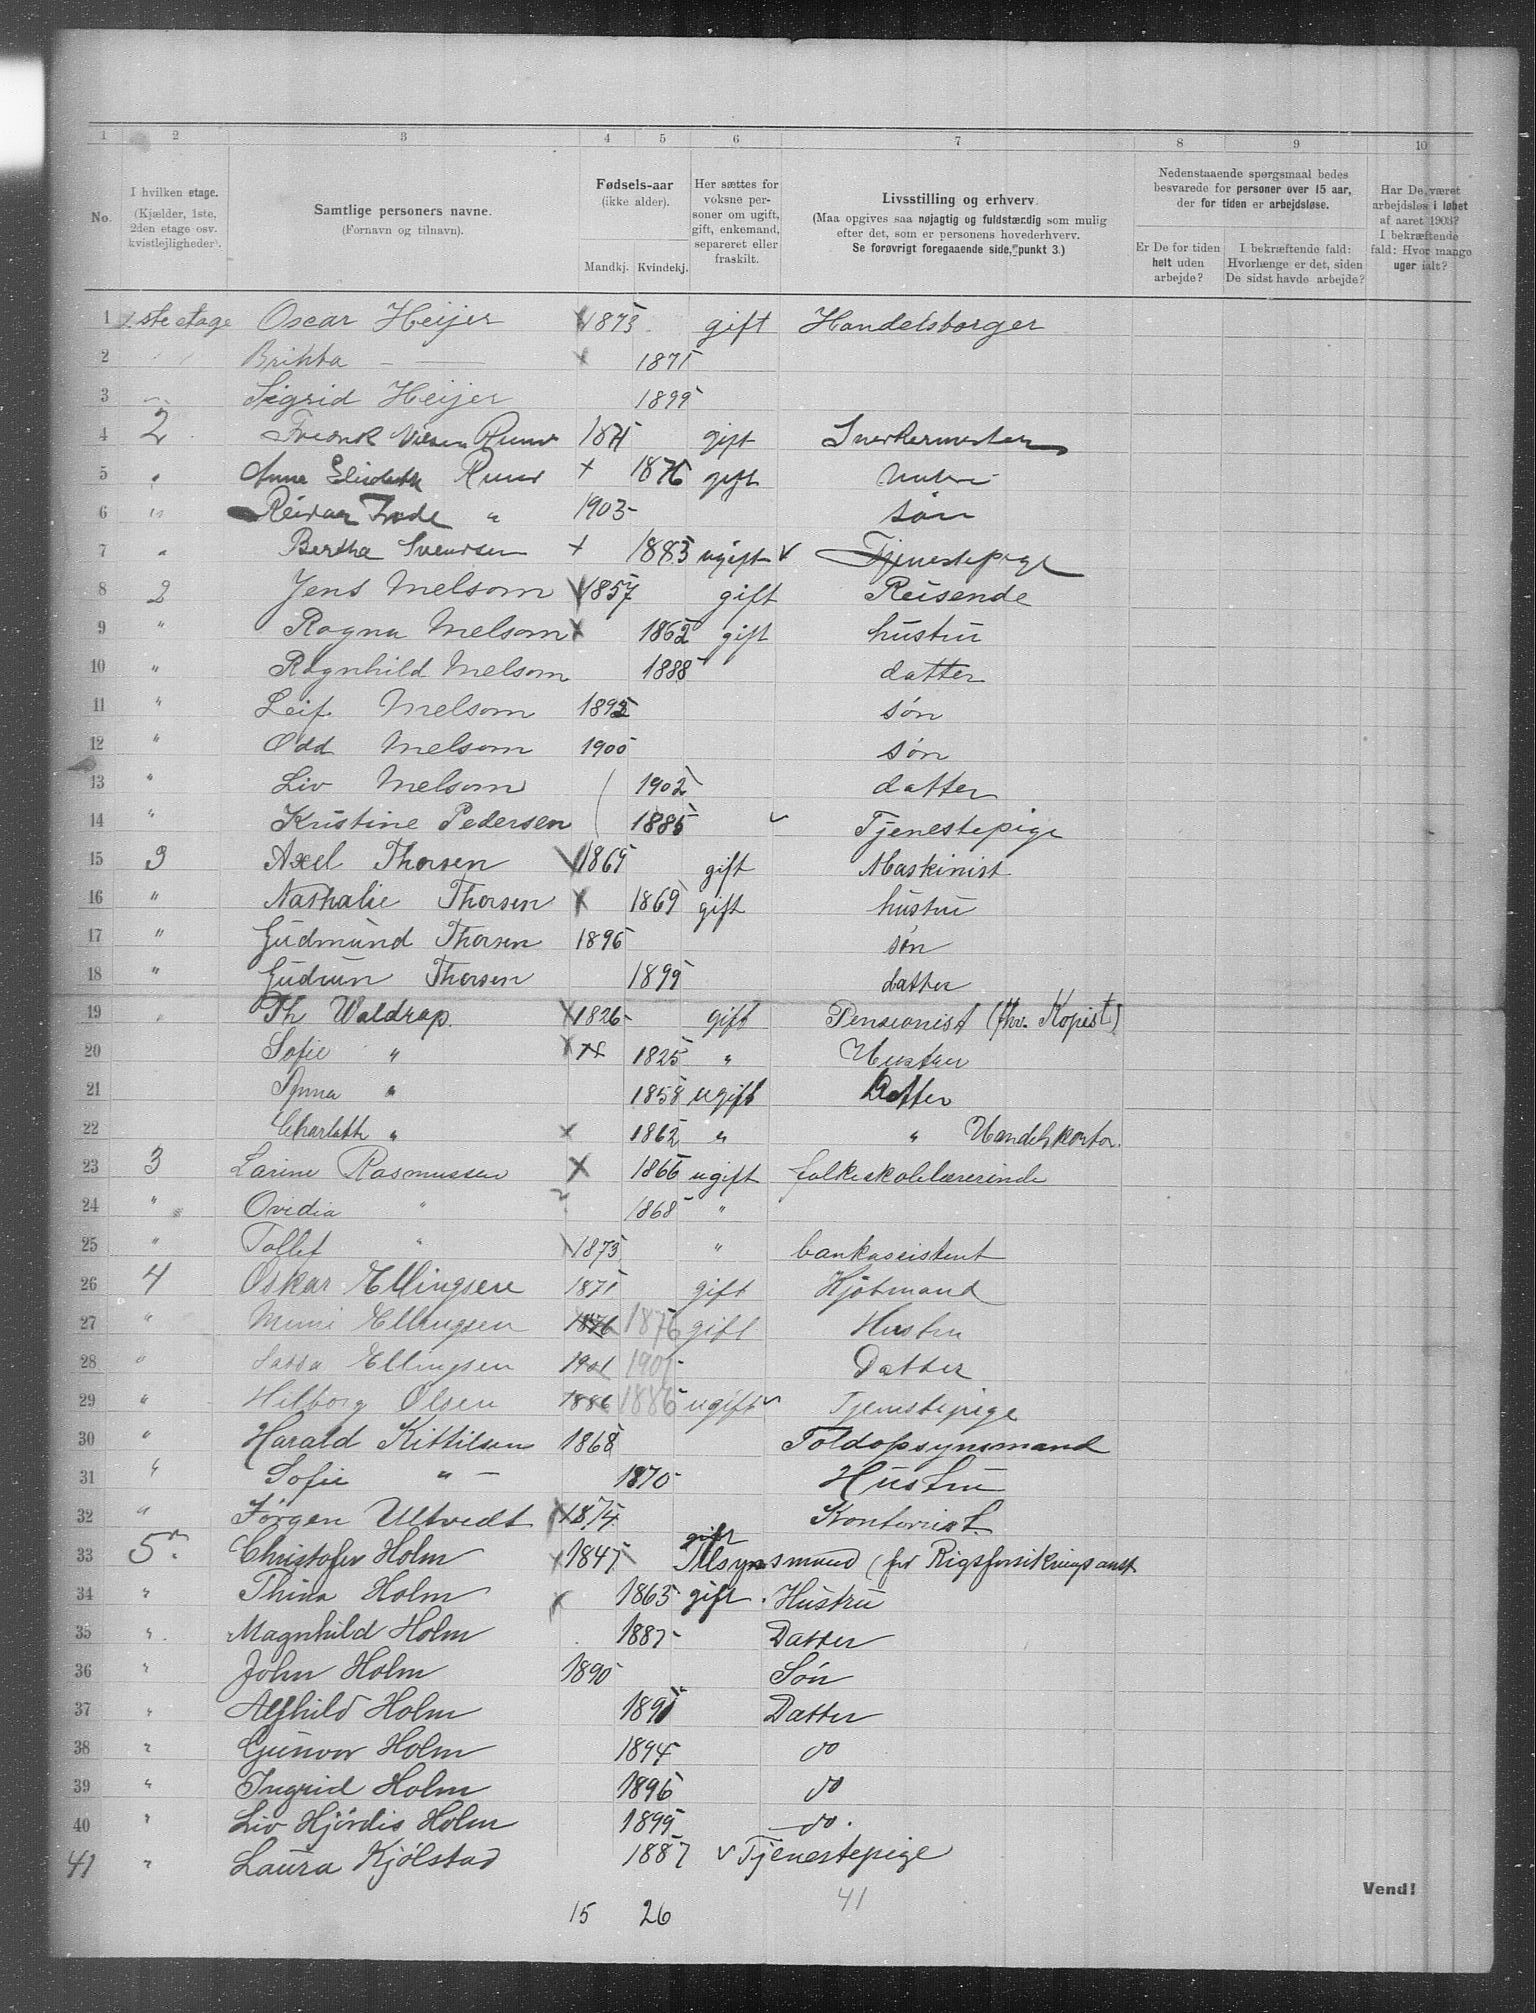 1 2 3 4 5 6 7 8 9 10
No. I hvilken etage. (Kjælder, 1ste, 2den etage osv. kvistlejligheder). Samtlige personers navne. (Fornavn og tilnavn). Fødsels-aar (ikke alder). Mandkj. Kvindekj. Her sættes for voksne personer om ugift, gift, enkemand, separeret eller fraskilt. Livsstilling og erhverv. (Maa opgives saa nøjagtig og fuldstændig som mulig efter det, som er personens hovederhverv. Se forøvrigt foregaaende side, punkt 3.) Nedenstaaende spørgsmaal bedes besvarede for personer over 15 aar, der for tiden er arbejdsløse. Er De for tiden helt uden arbejde? I bekræftende fald: Hvorlænge er det, siden De sidst havde arbejde? Har De været arbejdsløs i løbet af aaret 1903? I bekræftende fald: Hvor mange uger ialt?
1 1ste etage Oscar Heijer 1873 gift Handelsborger
2 " Brikka — 1871
3 Sigrid Heijer 1899
4 2 Fredrik Nilsen Ruud 1871 gift Snekkermester
5 " Anna Elisabeth Ruud + 1876 gift
6 " Reidar Frode " 1903 søn
7 " Bertha Svendsen + 1883 ugift Tjenestepige
8 2 Jens Melsom 1857 gift Reisende
9 " Ragna Melsom x 1862 gift hustru
10 " Ragnhild Melsom 1888 datter
11 " Leif Melsom 1893 søn
12 " Odd Melsom 1900 søn
13 " Liv Melsom 1902 datter
14 " Kristine Pedersen 1885 Tjenestepige
15 3 Axel Thorsen 1865 gift Maskinist
16 " Nathalie Thorsen x 1869 gift hustru
17 " Gudmund Thorsen 1896 søn
18 " Gudrun Thorsen 1899 datter
19 " Th Waldrap. x 1826 gift Pensionist (fhv. Kopist)
20 Sofie " x 1825 " Hustru
21 Anna " 1858 ugift Datter
22 Charlotte " x 1862 " " Handelskontor.
23 3 Larine Rasmussen x 1866 ugift folkeskolelærerinde
24 " Ovidia " 1868 "
25 " Tollef " 1873 " bankassistent
26 4 Oskar Ellingsen 1871 gift Kjøbmand
27 " Mimi Ellingsen 1876 1876 gift Hustru
28 " Ellingsen 1901 1901 Datter
29 " Hilborg Olsen 1886 1886 ugift Tjenstepige
30 " Harald Kittilsen 1868 Toldopsynsmand
31 " Sofie " — 1870 Hustru
32 " Jørgen Ultvedt x 1874 Kontorist.
33 5. Christofer Holm x 1847 gift Tilsynsmand (for Rigsforsikringsanst
34 " Thina Holm x 1863 gift. Hustru
35 " Magnhild Holm 1887 Datter
36 " John Holm 1890 Søn
37 " Alfhild Holm 1891 Datter
38 " Gunvor Holm 1894 do
39 " Ingrid Holm 1896 do
40 " Liv Hjördis Holm 1899 do.
41 " Laura Kjølstad 1887 Tjenestepige
15 26 41
Vend!